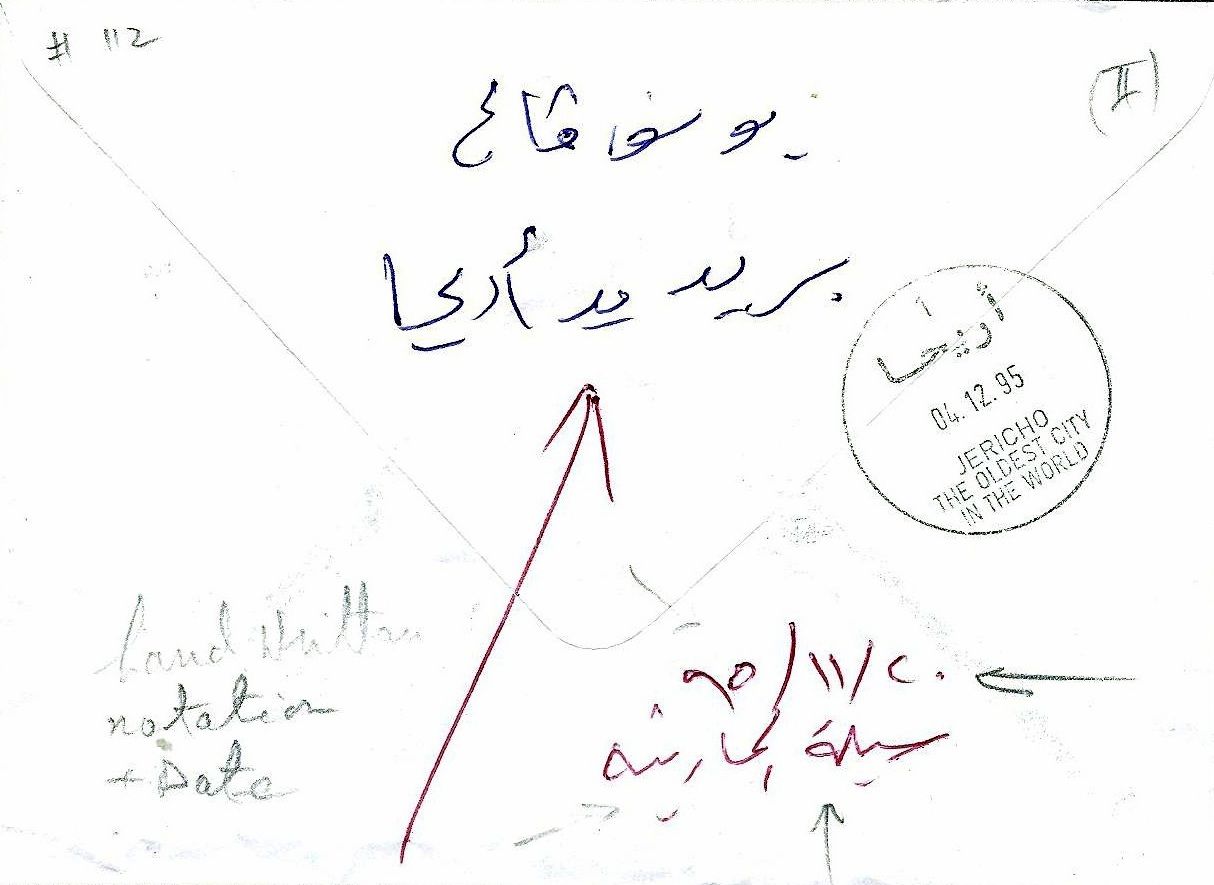 # 112
(II)
بريد أريحا
أريحا
04.12.95
JERICHO
THE OLDEST CITY
IN THE WORLD
hand written
notation
+ Date
٩٥/١١/٢٠
سيلة الحارثية